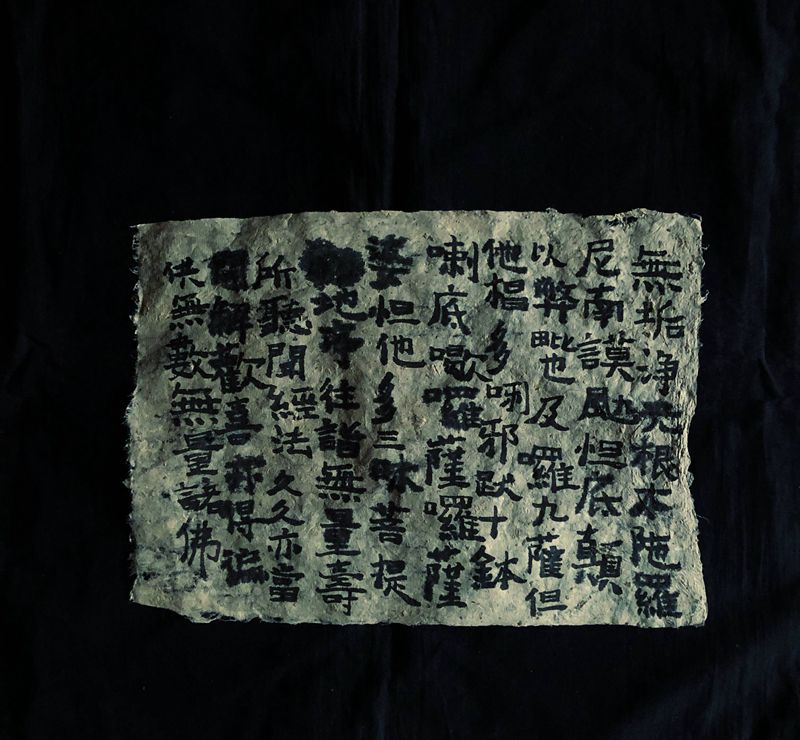 無垢淨光根本陁羅
尼南謨颭怛底顛
以弊毗也及囉九薩但
他榅多呬邪䭾十鉢
喇底㘑囉薩囉薩
婆怛他多三昧菩提
地序往詣無量壽
所聽聞經法久久亦當
解歡喜獲得
供無數無量諸佛